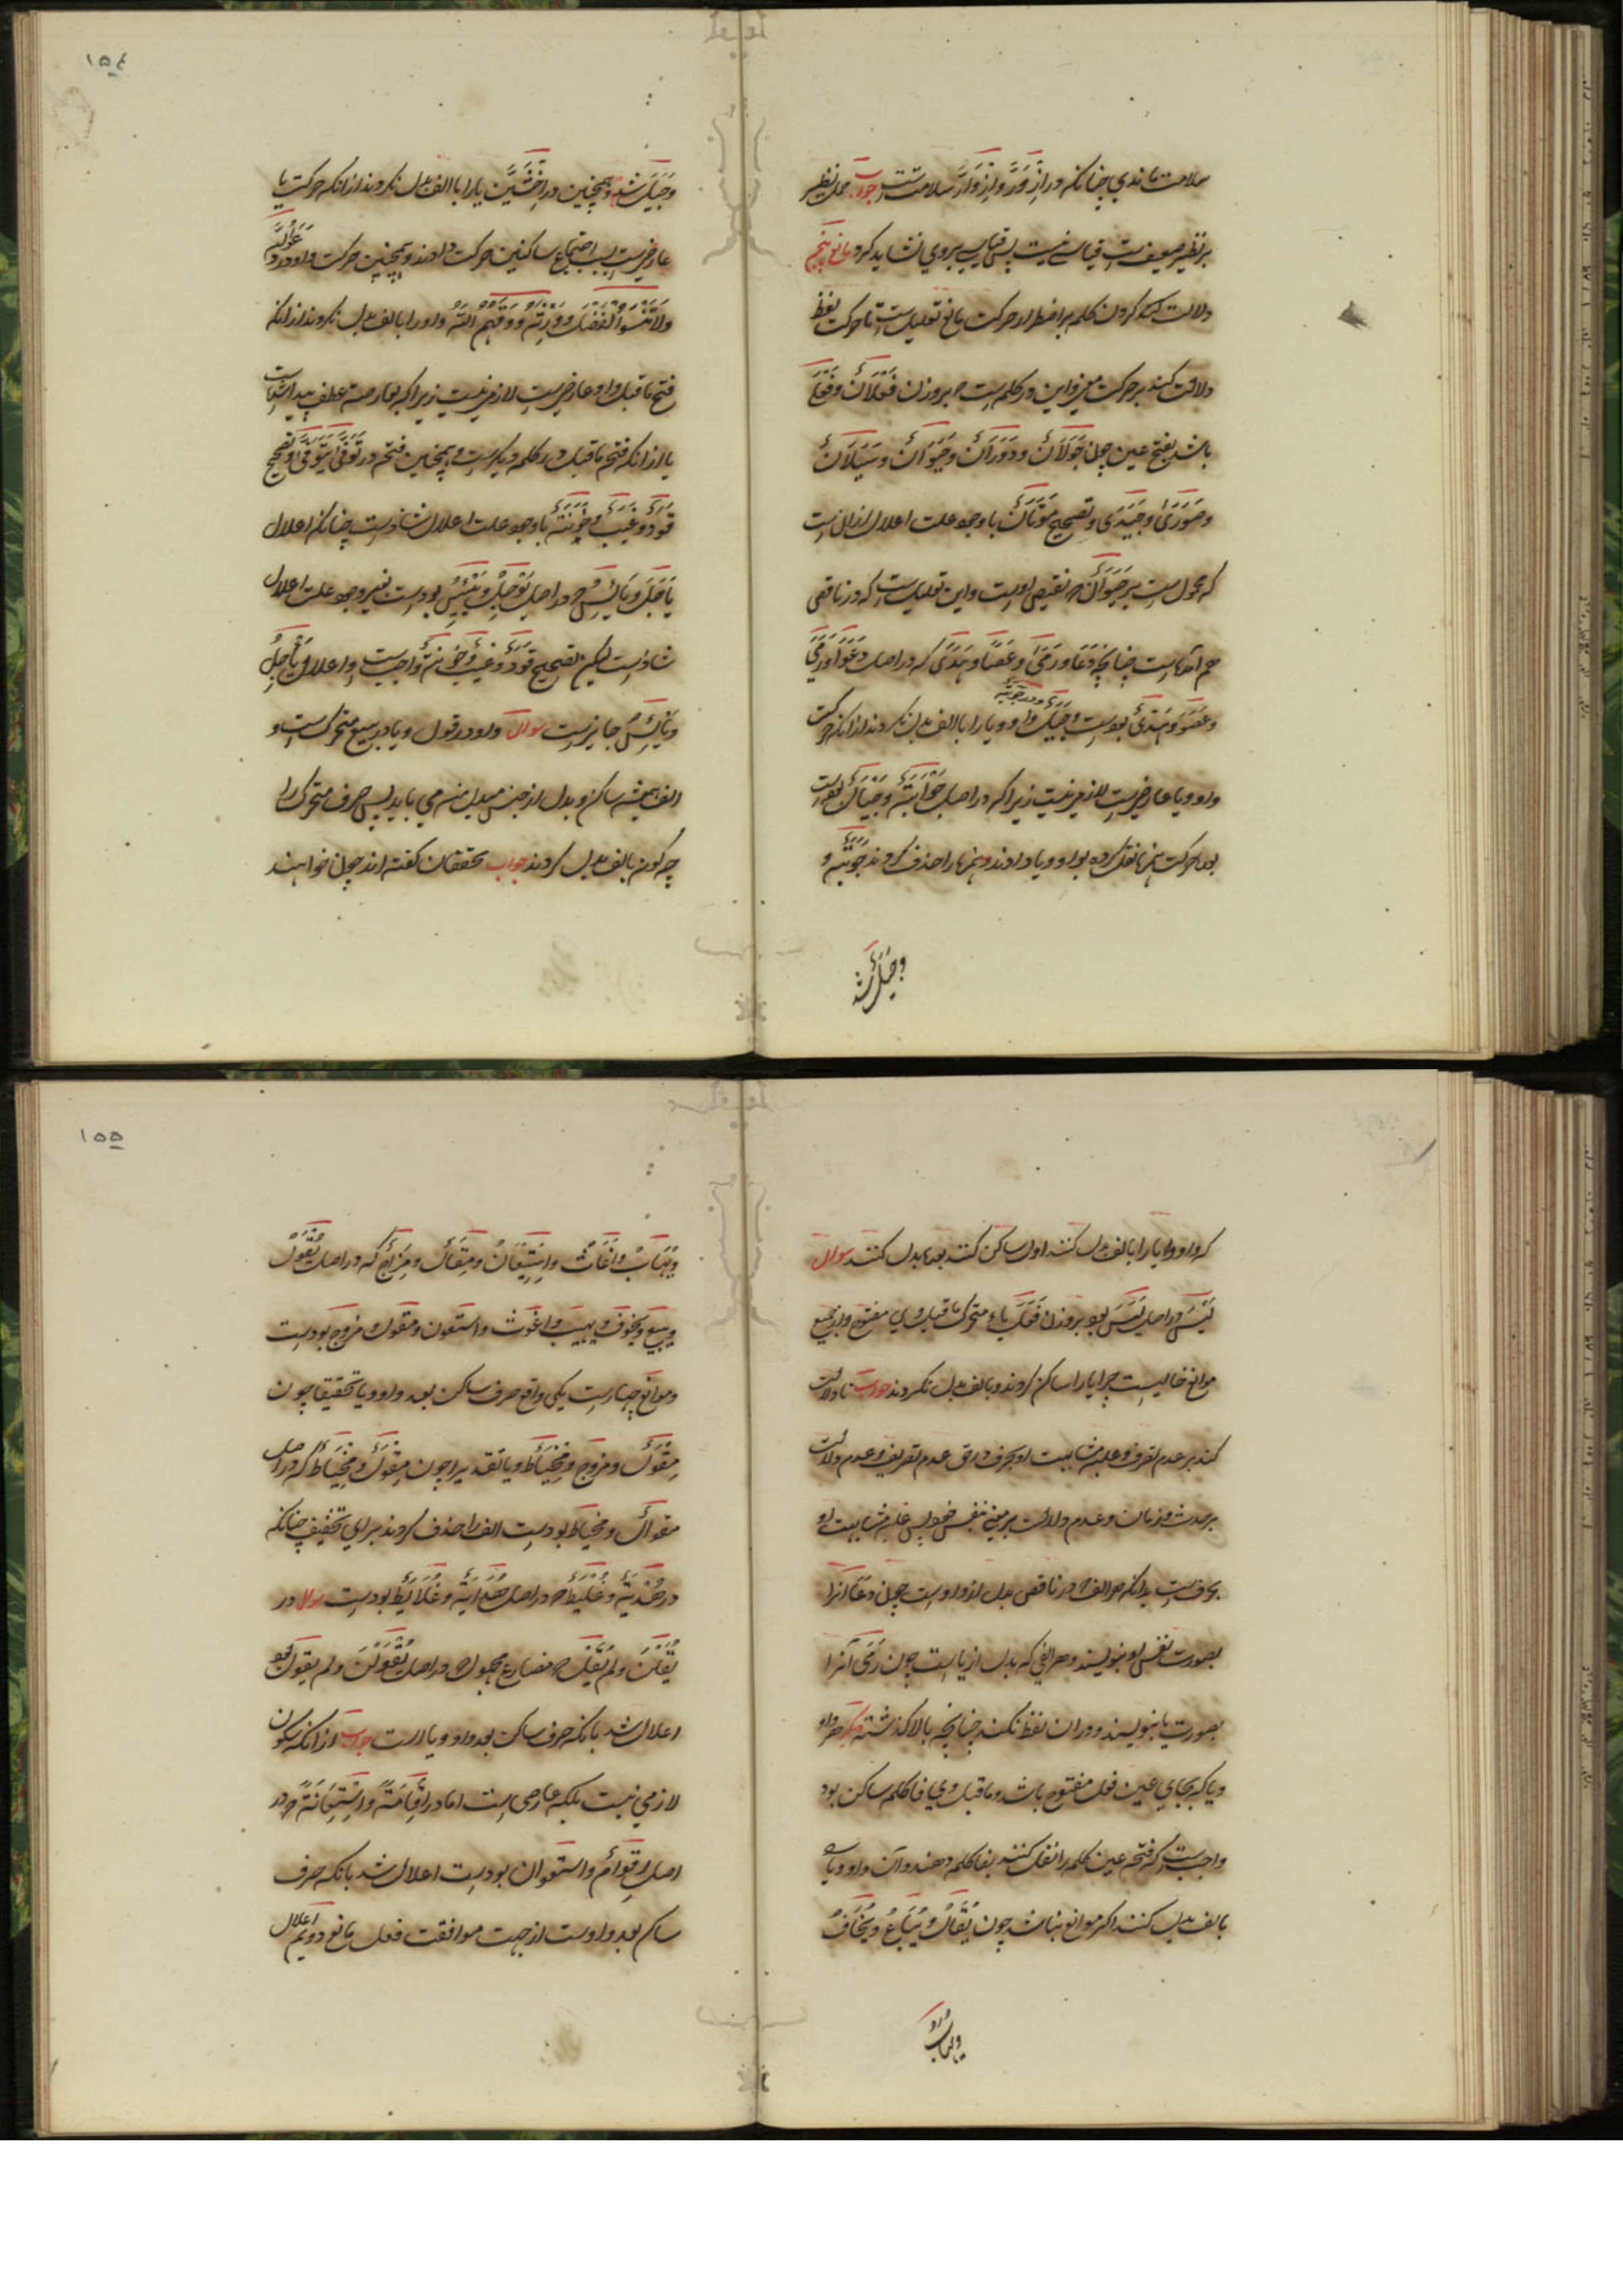 سلامت ماندی چنانکه در اِزْوَرَّ و اِزْوَارَّ سلامتست جواب حمل نظیر
بر نظیر ضعیف ست قیاسے نیست پس قیاس بروی نشاید کرد و مانع پنجم
دلالت کردن کلمه بر اضطرار حرکت مانع تعلیل ست تا حرکت لفظ
دلالت کند بر حرکت معنی و این در کلمه ست که بر وزن فَعَلَانٌ و فَعَلَى
باشد بفتح عین چون جَوَلَانٌ و دَوَرَانٌ و حَیَوَانٌ و سَیَلَانٌ
و صَوَرَى و حَیَدَى و تصحیح مَوَتَانٌ با وجود علت اعلال ازان ست
که محمول ست بر حَیَوَانٌ که نقیض اوست و این تعلیل ست که در ناقص
هم آمده است چنانچه دَعَا و رَمَى و عَصًا و هُدًى که در اصل دَعَوَ و رَمَيَ
و عَصَوٌ و هُدَيٌ بودست و در جَوَبَةٌ و جَیَلٌ واو و یا را با الف بدل نکردند ازانکه حرکت
واو و یا عارضی ست لازم نیست زیرا که در اصل جَوْأَبَةٌ و جَیْأَلٌ بودست
بود حرکت همزه نقل کرده بواو و یا دادند و همزه را حذف کردند جَوَبَةٌ و
و جَیَلٌ شد
۱۵۴
و جَیَلٌ شد و همچنین در اِخْشَیِنَّ یا را با الف بدل نکردند ازانکه حرکت یا
عارضی ست بسبب اجتماع ساکنین حرکت دادند و همچنین حرکت واو در
وَلَا تَنْسَوُا الْفَضْلَ و وَقٰهُمُ اللّٰهُ واو را بالف بدل نکردند ازانکه
فتح ماقبل واو عارضی ست لازم نیست زیرا که بعارضه عطف پیدا شده است
یا ازانکه فتح ماقبل در کلمه دیگرست و همچنین فتحه در تَوَفَّى یَتَوَفَّى و تصحیح
قَوَدٌ و غَیَبٌ و خَوَنَةٌ با وجود علت اعلال شاذ ست چنانکه اعلال
یَاجَلُ و یَائِسُ که در اصل یَوْجَلُ و یَیْئِسُ بودست بغیر وجود علت اعلال
شاذ ست لیکن تصحیح قَوَدٌ و غَیَبٌ و خَوَنَةٌ واجبست و اعلال یَاجَلُ
و یَائِسُ جایزست سوال واو در قول و یا در بیع متحرک ست و
الف همیشه ساکن و بدل از جنس مبدل منه می باید پس حرف متحرک را
چگونه بالف بدل کردند جواب محققان گفته اند چون خواهند
که واو و یا را بالف بدل کنند اول ساکن کنند بعده بدل کنند سوال
لَیْسَ در اصل لَیِسَ بود بر وزن فَعِلَ یاء متحرک ماقبل وی مفتوح و از جمیع
موانع خالیست چرا یا را ساکن کردند و بالف بدل نکردند جواب تا دلالت
کند بر عدم تصرف و علبه مشابهت او بحرف در حق عدم تصریف و عدم دلالت
بر حدث و زمان و عدم دلالت بر معنی بنفس خود پس غلبه مشابهت او
بحرفست بدانکه هر الف که در ناقص بدل از واوست چون دعا آنرا
بصورت نفس او بنویسند و هر الفی که بدل از یا است چون رَمَى آنرا
بصورت یا بنویسند و دران نقط نکنند چنانچه بالا گذشت دیگر هر واو
و یا که بجای عین فعل مفتوح باشد و ماقبل وی فا کلمه ساکن بود
واجبست که فتحه عین کلمه را نقل کنند بفا کلمه دهند و آن واو و یا
بالف بدل کنند اگر موانع نباشد چون یُقَالُ و یُبَاعُ و یُخَافُ
و یُهَابُ
۱۵۵
و یُهَابُ و اَغَاثَ و اِسْتِعَانَ و مَقَالٌ و مَزَاجٌ که در اصل یُقْوَلُ
و یبیع و یخوف و یهیب و اغوث و استعون و مقول و مزوج بودست
و موانع چهارست یکی واقع حرف ساکن بعد واو و یا تحقیقا چون
مِقْوَالٌ و مزوج و مِخْیَاطٌ و یا تقدیرا چون مِقْوَلٌ و مِخْیَطٌ که در اصل
مقوال و مخیاط بودست الف را حذف کردند برای تخفیف چنانکه
در هُدَبِدٌ و عُلَبِطٌ که در اصل هُدَابِدٌ و عُلَابِطٌ بودست سوال در
یُقَلْنَ و لَمْ یُقَلْ که مضارع مجهول ست در اصل یُقْوَلْنَ و لم یقول بود
اعلال شد بانکه حرف ساکن بعد واو و یا است جواب ازانکه سکون
لازمی نیست بلکه عارضی است اما در اِقَامَةٌ و اِسْتِعَانَةٌ که در
اصل اِقْوَامٌ و استعوان بودست اعلال شد بانکه حرف
ساکن بعد واوست از جهت موافقت فعل مانع دویم اعلال